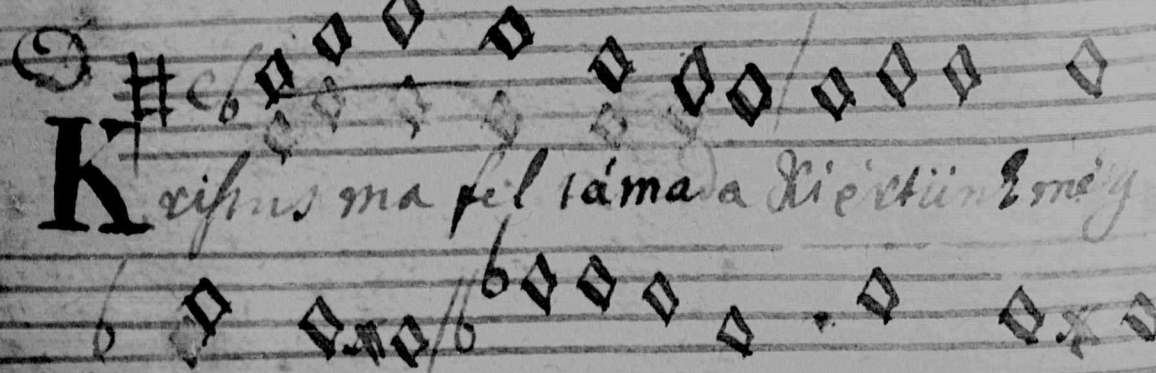 Kristus ma fel támada Ki értünk meg